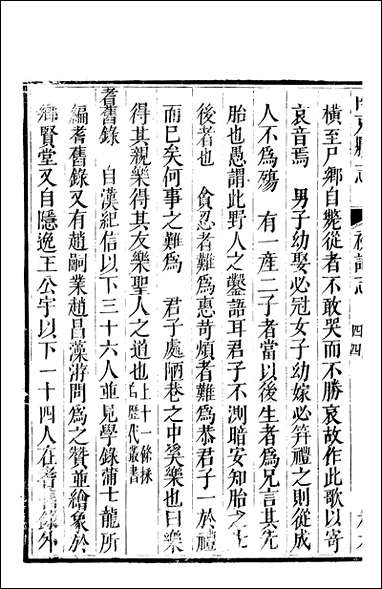 橫至尸鄉自斃從者不敢哭而不勝哀故作此歌以寄
哀音焉　男子幼娶必冠女子幼嫁必笄禮之則從成
人不為殤　有一產二子者當以後生者為兄言其先
胎也愚謂此野人之鑿語耳君子不測暗安知胎之先
後者也　貪忍者難為惠苛煩者難為恭君子一於禮
而已矣何事之難為　君子處陋巷之中奚樂也曰樂
得其親樂得其友樂聖人之道也上十一條採自歷代叢書
耆舊錄　自漢紀信以下三十六人並見學錄蒲士龍所
編耆舊錄又有趙嗣業趙昌藻游問為之贊並繪象於
鄉賢堂又自隱逸王公宇以下一十四人在耆舊錄外
雜記志
四四